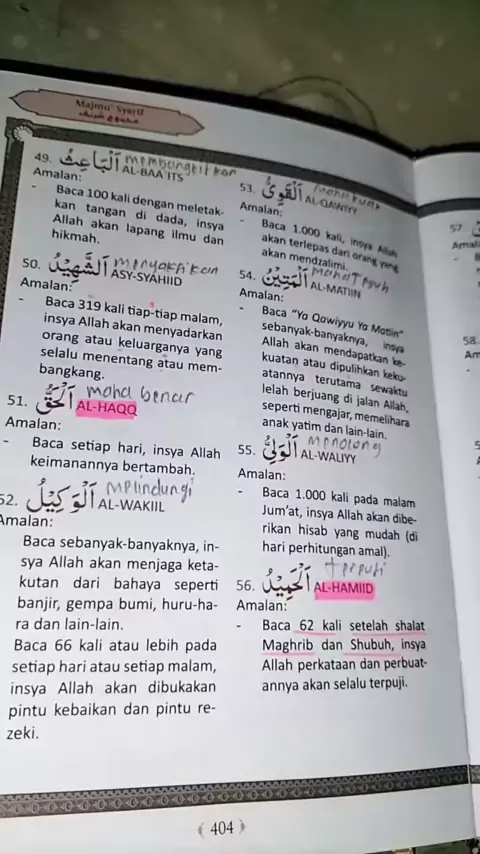 Majmu' Syarif
مجموع شريف
49. اَلْبَاعِثُ membangkitkan
AL-BAA'ITS
Amalan:
- Baca 100 kali dengan meletak-
kan tangan di dada, insya
Allah akan lapang ilmu dan
hikmah.
50. اَلشَّهِيْدُ menyaksikan
ASY-SYAHIID
Amalan:
- Baca 319 kali tiap-tiap malam,
insya Allah akan menyadarkan
orang atau keluarganya yang
selalu menentang atau mem-
bangkang.
51. اَلْحَقُّ maha benar
AL-HAQQ
Amalan:
- Baca setiap hari, insya Allah
keimanannya bertambah.
52. اَلْوَكِيْلُ melindungi
AL-WAKIIL
Amalan:
Baca sebanyak-banyaknya, in-
sya Allah akan menjaga keta-
kutan dari bahaya seperti
banjir, gempa bumi, huru-ha-
ra dan lain-lain.
Baca 66 kali atau lebih pada
setiap hari atau setiap malam,
insya Allah akan dibukakan
pintu kebaikan dan pintu re-
zeki.
53. اَلْقَوِيُّ maha kuat
AL-QAWIYY
Amalan:
- Baca 1.000 kali, insya Allah
akan terlepas dari orang yang
akan mendzalimi.
54. اَلْمَتِيْنُ maha Teguh
AL-MATIIN
Amalan:
- Baca "Ya Qawiyyu Ya Matiin"
sebanyak-banyaknya, insya
Allah akan mendapatkan ke-
kuatan atau dipulihkan keku-
atannya terutama sewaktu
lelah berjuang di jalan Allah,
seperti mengajar, memelihara
anak yatim dan lain-lain.
55. اَلْوَلِيُّ menolong
AL-WALIYY
Amalan:
- Baca 1.000 kali pada malam
Jum'at, insya Allah akan dibe-
rikan hisab yang mudah (di
hari perhitungan amal).
56. اَلْحَمِيْدُ terpuji
AL-HAMIID
Amalan:
- Baca 62 kali setelah shalat
Maghrib dan Shubuh, insya
Allah perkataan dan perbuat-
annya akan selalu terpuji.
404
57
58.